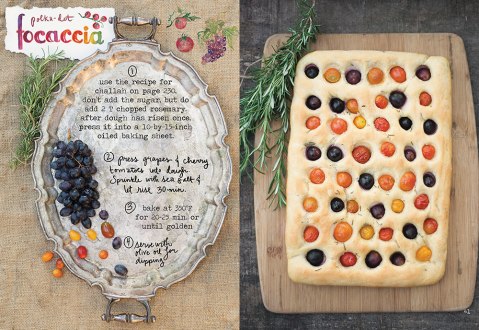 polka-dot
focaccia
1
use the recipe for
challah on page 230.
don't add the sugar, but do
add 2 T chopped rosemary.
after dough has risen once,
press it into a 10-by-15-inch
oiled baking sheet.
2 press grapes & cherry
tomatoes into dough.
Sprinkle with sea salt &
let rise 30 min.
3 bake at 350°F
for 20-25 min. or
until golden
4 serve with
olive oil for
dipping